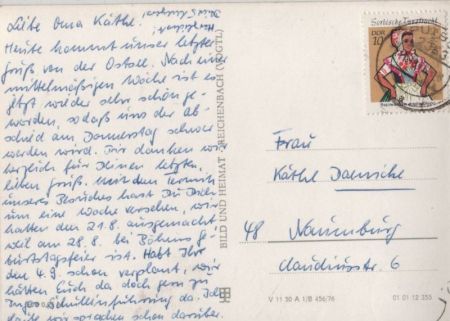 Liebe Oma Käthe!
Heute kommt unser letzter
Gruß von der Ostsee. Nach einer
mittelmäßigen Woche ist es
jetzt wieder sehr schön ge-
worden, sodaß uns der Ab-
schied am Donnerstag schwer
werden wird. Wir danken
herzlich für Deinen letzten
lieben Gruß. Mit dem Termin
unseres Besuches hast Du Dich
um eine Woche versehen, wir
hatten den 21.8. ausgemacht
weil am 28.8. bei Böhms Ge-
burtstagsfeier ist. Habt Ihr
den 4.9. schon verplant, wir
hätten Euch da doch gern zu
Schuleinführung da. Ich
wir sprechen schon darüber.
BILD UND HEIMAT REICHENBACH (VOGTL)
Sorbische Tanztracht
DDR 10
Frau
Käthe
48 Naumburg
Claudiusstr. 6
V 11 50 A 1/B 456/76 01 01 12 355